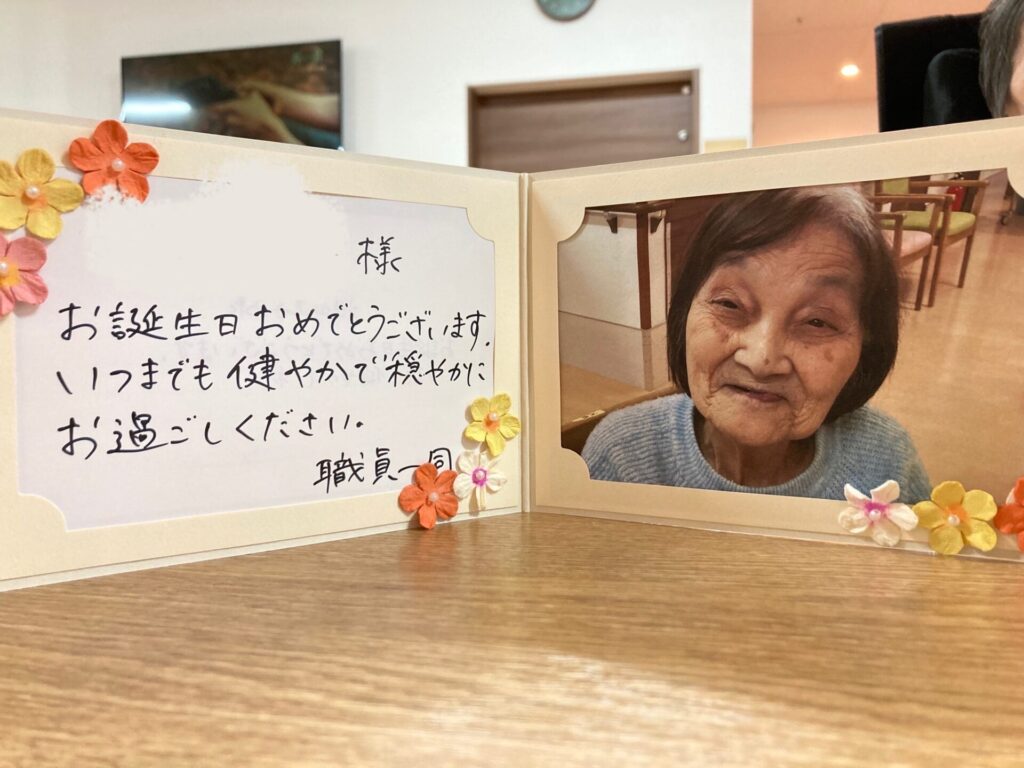 様
お誕生日おめでとうございます.
いつまでも健やかで穏やかに
お過ごしください。
職員一同